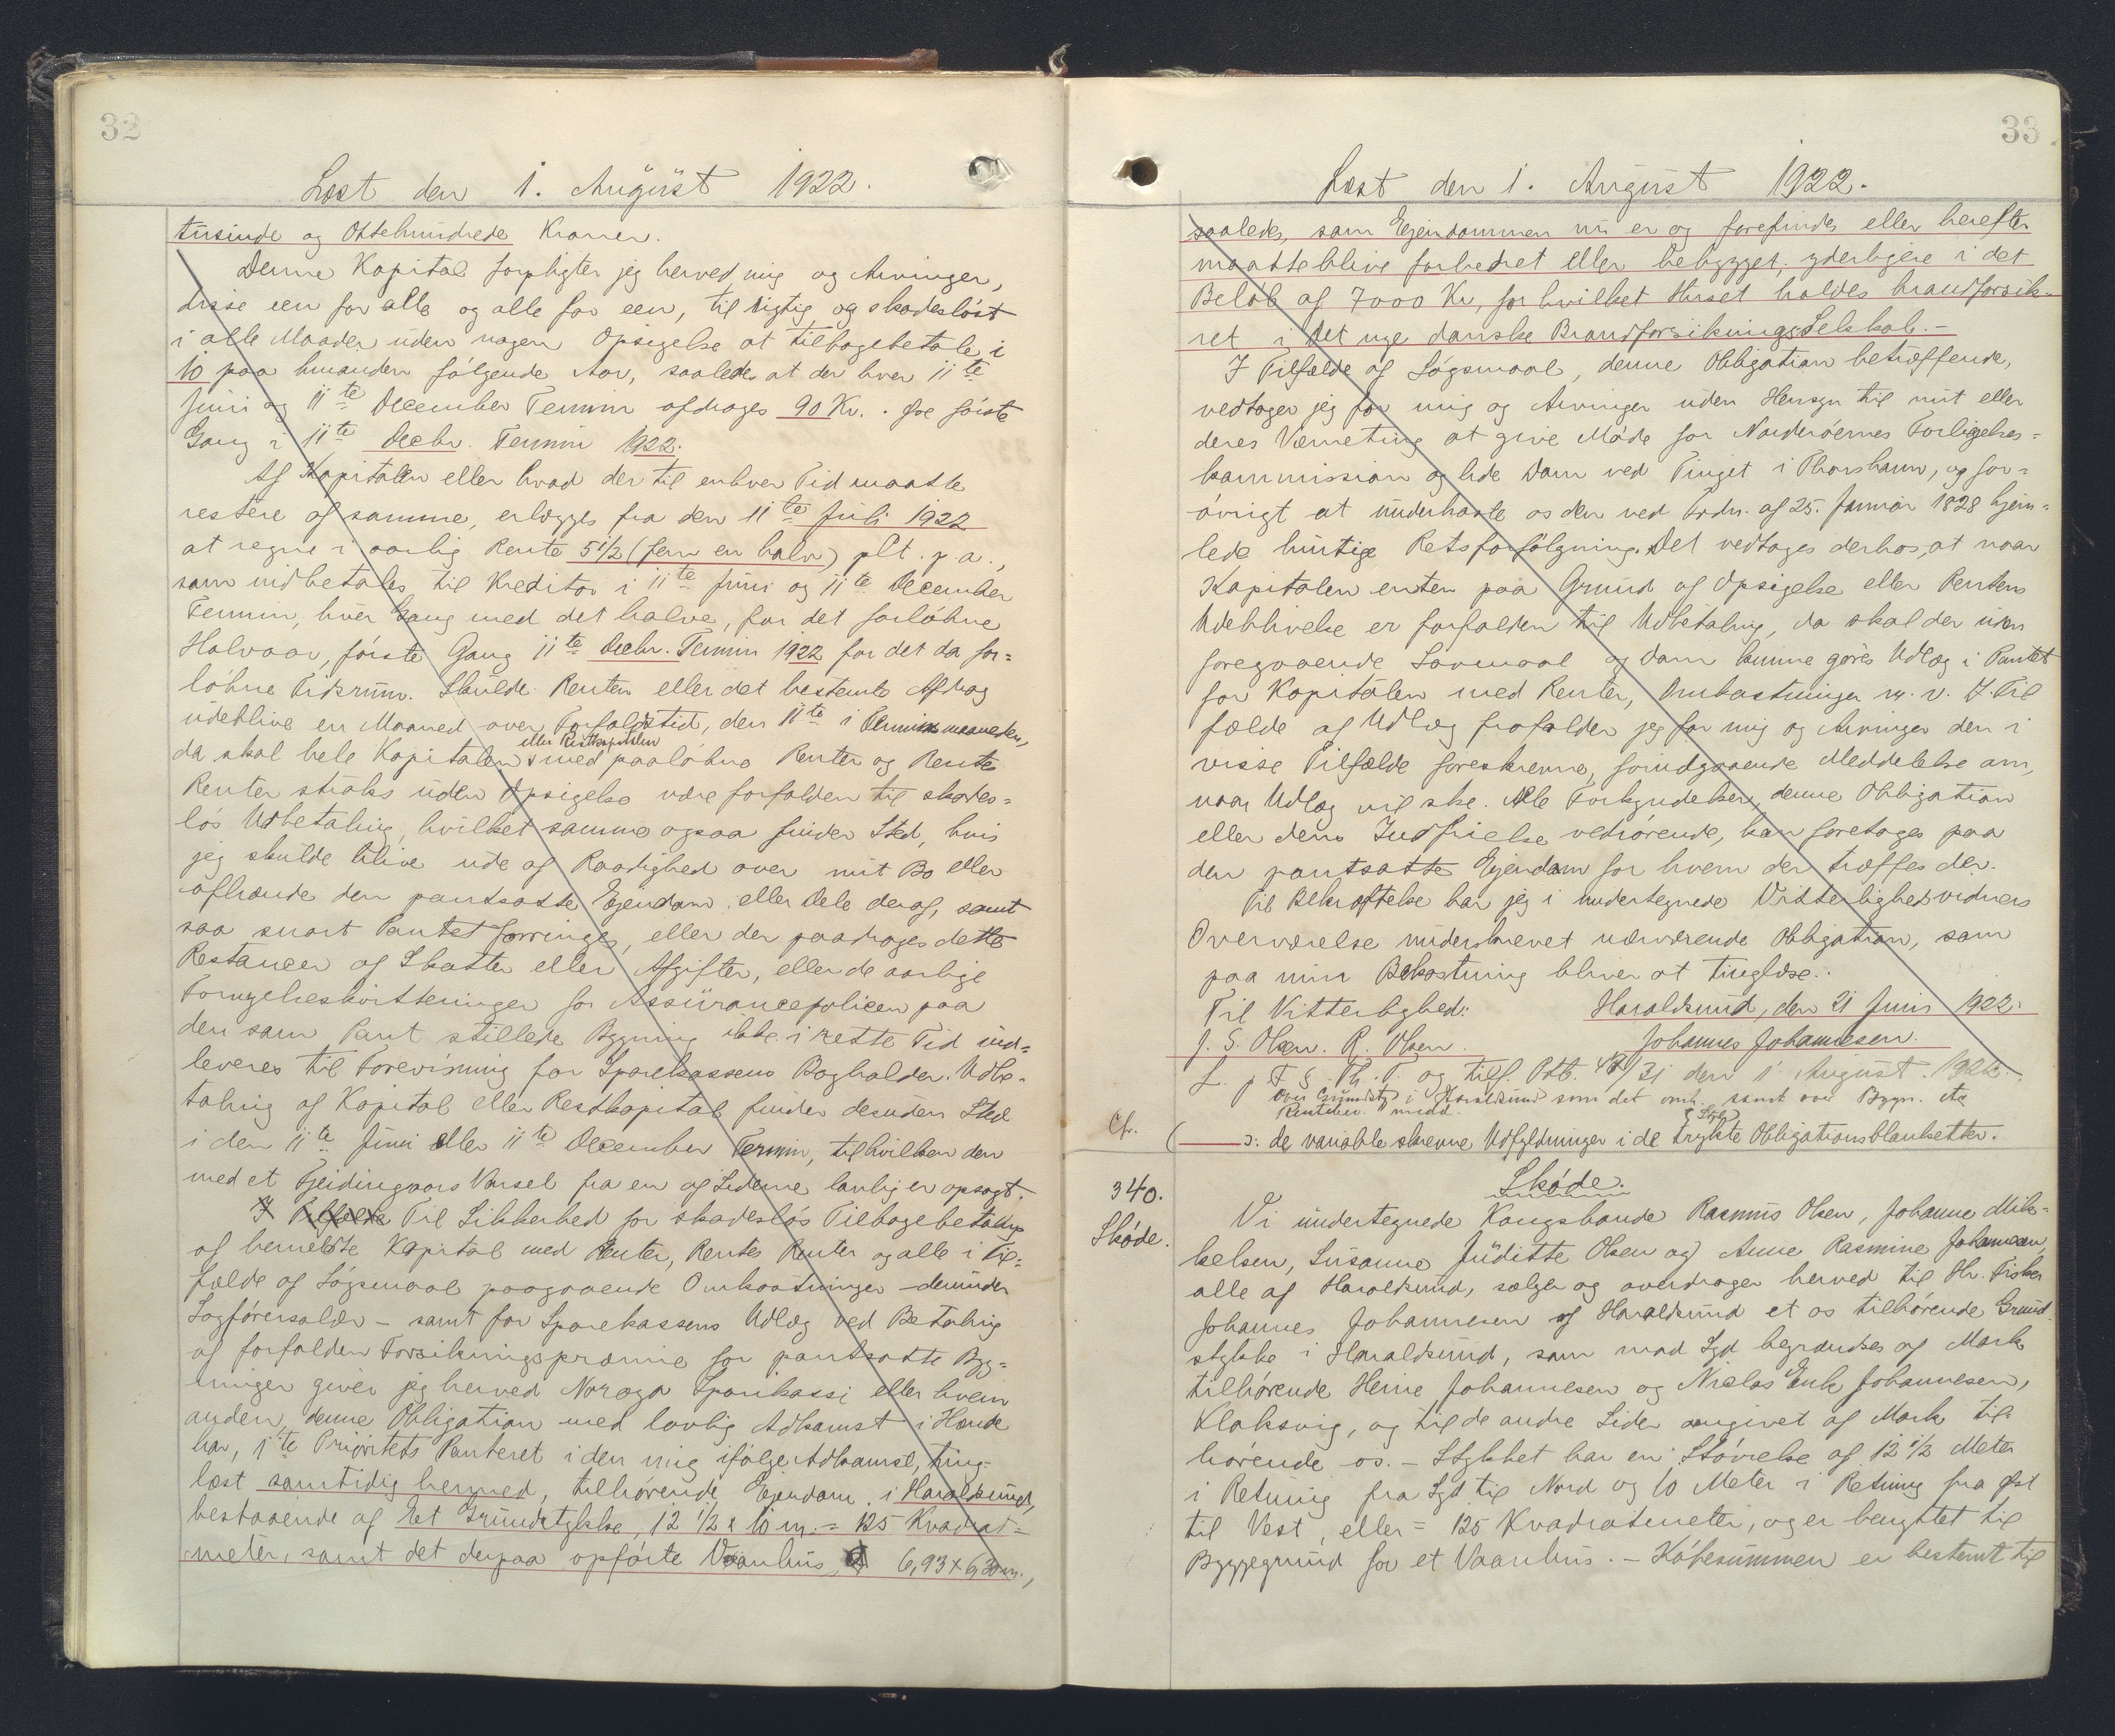 32
Læst den 1. August 1922.
tusinde og Ottehundrede Kroner.
Denne Kapital forpligter jeg herved mig og Arvinger,
disse een for alle og alle for een, til rigtig og skadesløst
i alle Maader uden nogen Opsigelse at tilbagebetale i
10 paa hinanden følgende Aar, saaledes at der hver 11te
Juni og 11te December Termin afdrages 90 Kr. første
Gang i 11te Decbr. Termin 1922.
Af Kapitalen eller hvad der til enhver Tid maatte
restere af samme, erlægges fra den 11te Juli 1922
at regne i aarlig Rente 5 1/2 (fem en halv) pCt. p. a.,
som indbetales til Kreditor i 11te Juni og 11te December
Termin, hver Gang med det halve, for det forløbne
Halvaar, første Gang 11te Decbr. Termin 1922 for det da for=
løbne Tidsrum. Skulde Renten eller det bestemte Afdrag
udeblive en Maaned over Forfaldstid, den 11te i Terminsmaaneden,
da skal hele Kapitalen eller Restkapitalen med paaløbne Renter og Rentes
Renter straks uden Opsigelse være forfalden til skades=
løs Udbetaling, hvilket samme ogsaa finder Sted, hvis
jeg skulde blive ude af Raadighed over mit Bo eller
afhænde den pantsatte Ejendom eller Dele deraf, samt
saa snart Pantet forringes, eller der paadrages dette
Restancer af Skatter eller Afgifter, eller de aarlige
Fornyelseskvitteringer for Assurancepolicen paa
den som Pant stillede Bygning ikke i rette Tid ind=
leveres til Forevisning for Sparekassens Bogholder. Udbe=
taling af Kapital eller Restkapital finder desuden Sted
i den 11te Juni eller 11te December Termin, til hvilken den
med et Fjerdingaars Varsel fra en af Siderne lovlig er opsagt.
I Tilfælde Til Sikkerhed for skadesløs Tilbagebetaling
af bemeldte Kapital med Renter, Rentes Renter og alle i Til=
fælde af Søgsmaal paagaaende Omkostninger – derunder
Sagførersalær – samt for Sparekassens Udlæg ved Betaling
af forfalden Forsikringspræmie for pantsatte Byg=
ninger giver jeg herved Norøya Sparikassi eller hvem
anden, denne Obligation med lovlig Adkomst i Hænde
har, 1te Prioritets Panteret i den mig ifølge Adkomst, ting=
læst samtidig hermed, tilhørende Ejendom i Haraldssund,
bestaaende af Et Grundstykke, 12 1/2 x 10 m. = 125 Kvadrat=
meter, samt det derpaa opførte Vaanhus 6,93 x 6,30 m.,
33
Læst den 1. August 1922.
saaledes, som Ejendommen nu er og forefindes eller herefter
maatte blive forbedret eller bebygget, yderligere i det
Beløb af 7000 Kr, for hvilket Huset holdes brandforsik=
ret i Det nye danske Brandforsikringsselskab. –
I Tilfælde af Søgsmaal, denne Obligation betræffende,
vedtager jeg for mig og Arvinger uden Hensyn til mit eller
deres Værneting at give Møde for Norderøernes Forligelses=
kommission og lide Dom ved Tinget i Thorshavn, og for=
øvrigt at underkaste os den ved Frdn. af 25. Januar 1828 hjem=
lede hurtige Retsforfølgning. Det vedtages derhos, at naar
Kapitalen enten paa Grund af Opsigelse eller Rentens
Udeblivelse er forfalden til Udbetaling, da skal der uden
foregaaende Lovmaal og Dom kunne gøres Udlæg i Pantet
for Kapitalen med Renter, Omkostninger m. v. I Til
fælde af Udlæg frafalder jeg for mig og Arvinger den i
visse Tilfælde foreskrevne, forudgaaende Meddelelse om,
naar Udlæg vil ske. Alle Forkyndelser, denne Obligation
eller dens Indfrielse vedrørende, kan foretages paa
den pantsatte Ejendom for hvem der træffes der.
Til Bekræftelse har jeg i undertegnede Vitterlighedsvidners
Overværelse underskrevet nærværende Obligation, som
paa min Bekostning bliver at tinglæse.
Til Vitterlighed: Haraldsund, den 21 Juni 1922.
J. S. Olsen. R. Olsen. Johannes Johannesen.
L. p F. S. Th. T. og tilf. Ptb. 48/31 den 1 August 1922.
Over Grundst. i Haraldsund som det omh. samt over Bygn. etc
Cfr. ( ɔ: de variable skrevne Udfyldninger i de trykte Obligationsblanketter.
340.
Skøde.
Skøde.
Vi undertegnede Kongsbonde Rasmus Olsen, Johanne Mik=
kelsen, Susanne Juditte Olsen og Anne Rasmine Johannesen,
alle af Haraldsund, sælger og overdrager herved til Hr. Fisker
Johannes Johannesen af Haraldsund et os tilhørende Grund
stykke i Haraldsund, som mod Syd begrændses af Mark
tilhørende Heine Johannesen og Niclas Eirik Johannesen,
Klaksvig, og til de andre Sider omgivet af Mark til=
hørende os. – Stykket har en Størrelse af 12 1/2 Meter
i Retning fra Syd til Nord og 10 Meter i Retning fra Øst
til Vest, eller = 125 Kvadratmeter, og er benyttet til
Byggegrund for et Vaanhus. – Købesummen er bestemt til